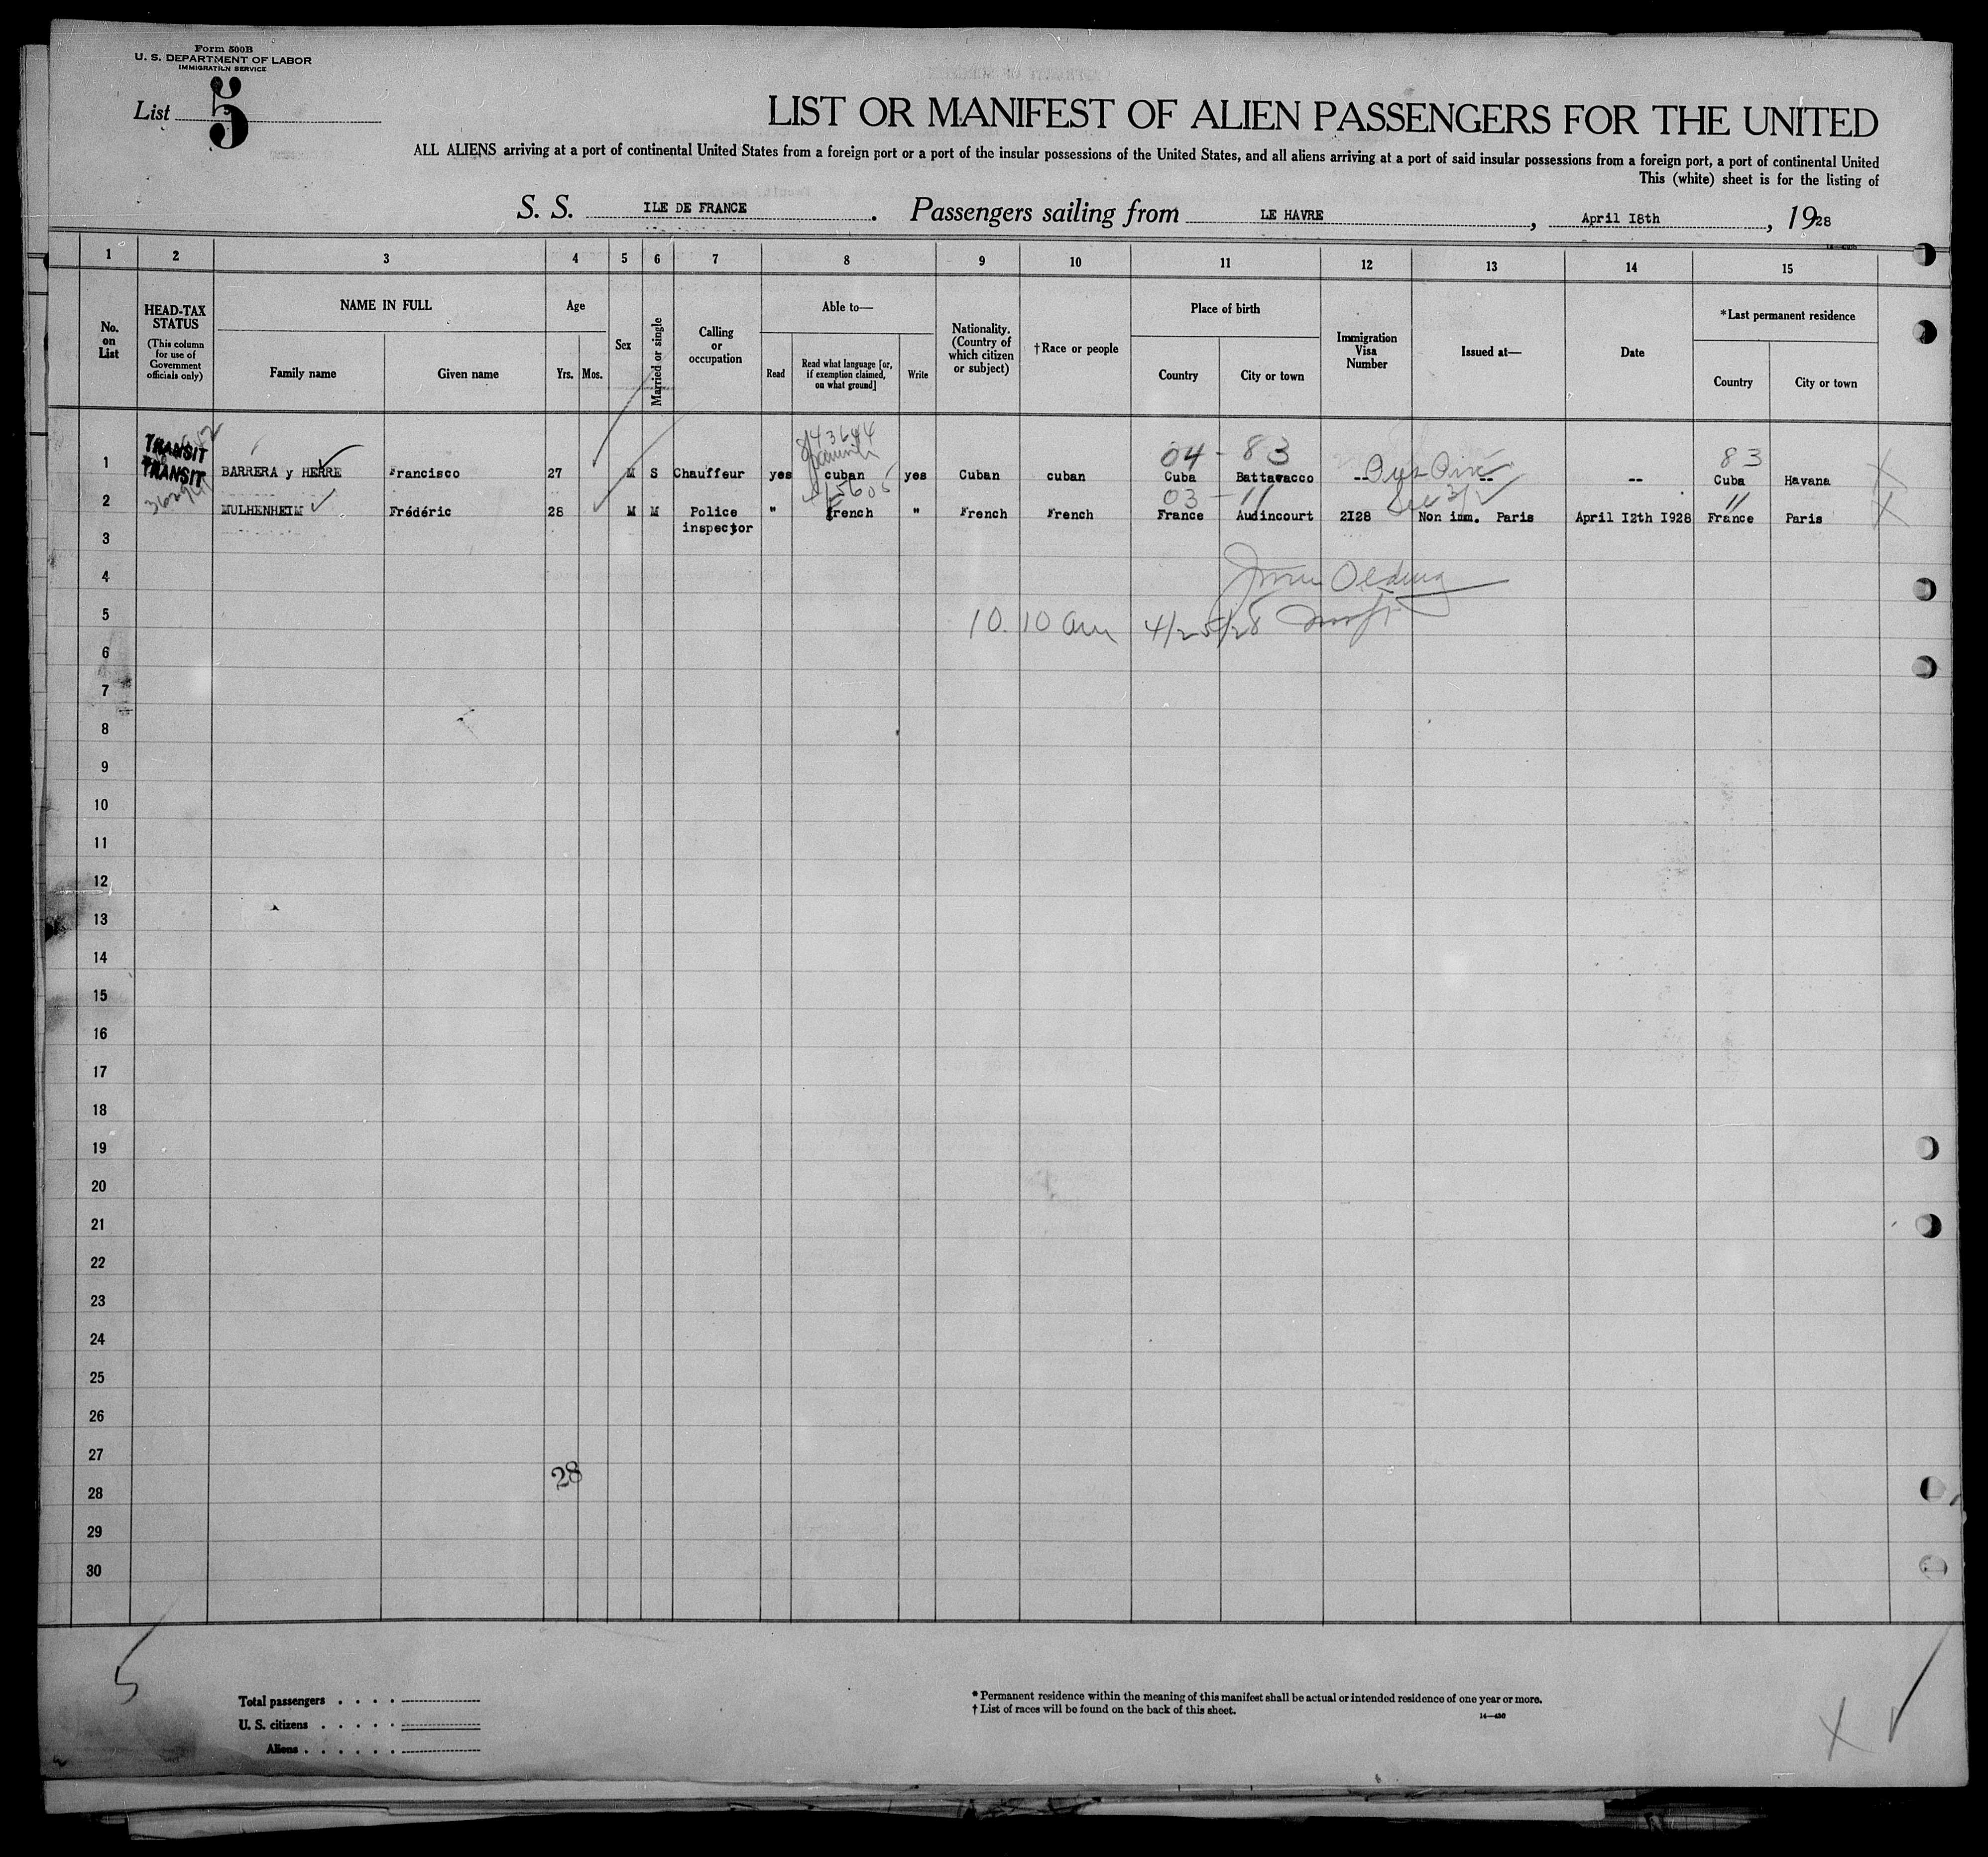 Form 500B
U. S. DEPARTMENT OF LABOR
IMMIGRATION SERVICE
List 5
LIST OR MANIFEST OF ALIEN PASSENGERS FOR THE UNITED
ALL ALIENS arriving at a port of continental United States from a foreign port or a port of the insular possessions of the United States, and all aliens arriving at a port of said insular possessions from a foreign port, a port of continental United
This (white) sheet is for the listing of
S. S. ILE DE FRANCE. Passengers sailing from LE HAVRE, April I8th, 1928
1 2 3 4 5 6 7 8 9 10 11 12 13 14 15
No. on List
HEAD-TAX STATUS
(This column for use of Government officials only)
NAME IN FULL
Family name
Given name
Age
Yrs. Mos.
Sex
Married or single
Calling or occupation
Able to—
Read
Read what language [or, if exemption claimed, on what ground]
Write
Nationality. (Country of which citizen or subject)
†Race or people
Place of birth
Country
City or town
Immigration Visa Number
Issued at—
Date
*Last permanent residence
Country
City or town
04 - 83 83
1 TRANSIT TRANSIT BARRERA y HERRE Francisco 27 M S Chauffeur yes cuban yes Cuban cuban Cuba Battawacco -- -- -- Cuba Havana
03 - 11 11
2 MULHENHEIM Frédéric 28 M M Police " french " French French France Audincourt 2I28 Non imm. Paris April I2th I928 France Paris
inspector
3
4
5 10.10 am 4/25/28
6
7
8
9
10
11
12
13
14
15
16
17
18
19
20
21
22
23
24
25
26
27
28
28
29
30
5
Total passengers . . . .
U. S. citizens . . . . .
Aliens . . . . . .
* Permanent residence within the meaning of this manifest shall be actual or intended residence of one year or more.
† List of races will be found on the back of this sheet.
14—430
X